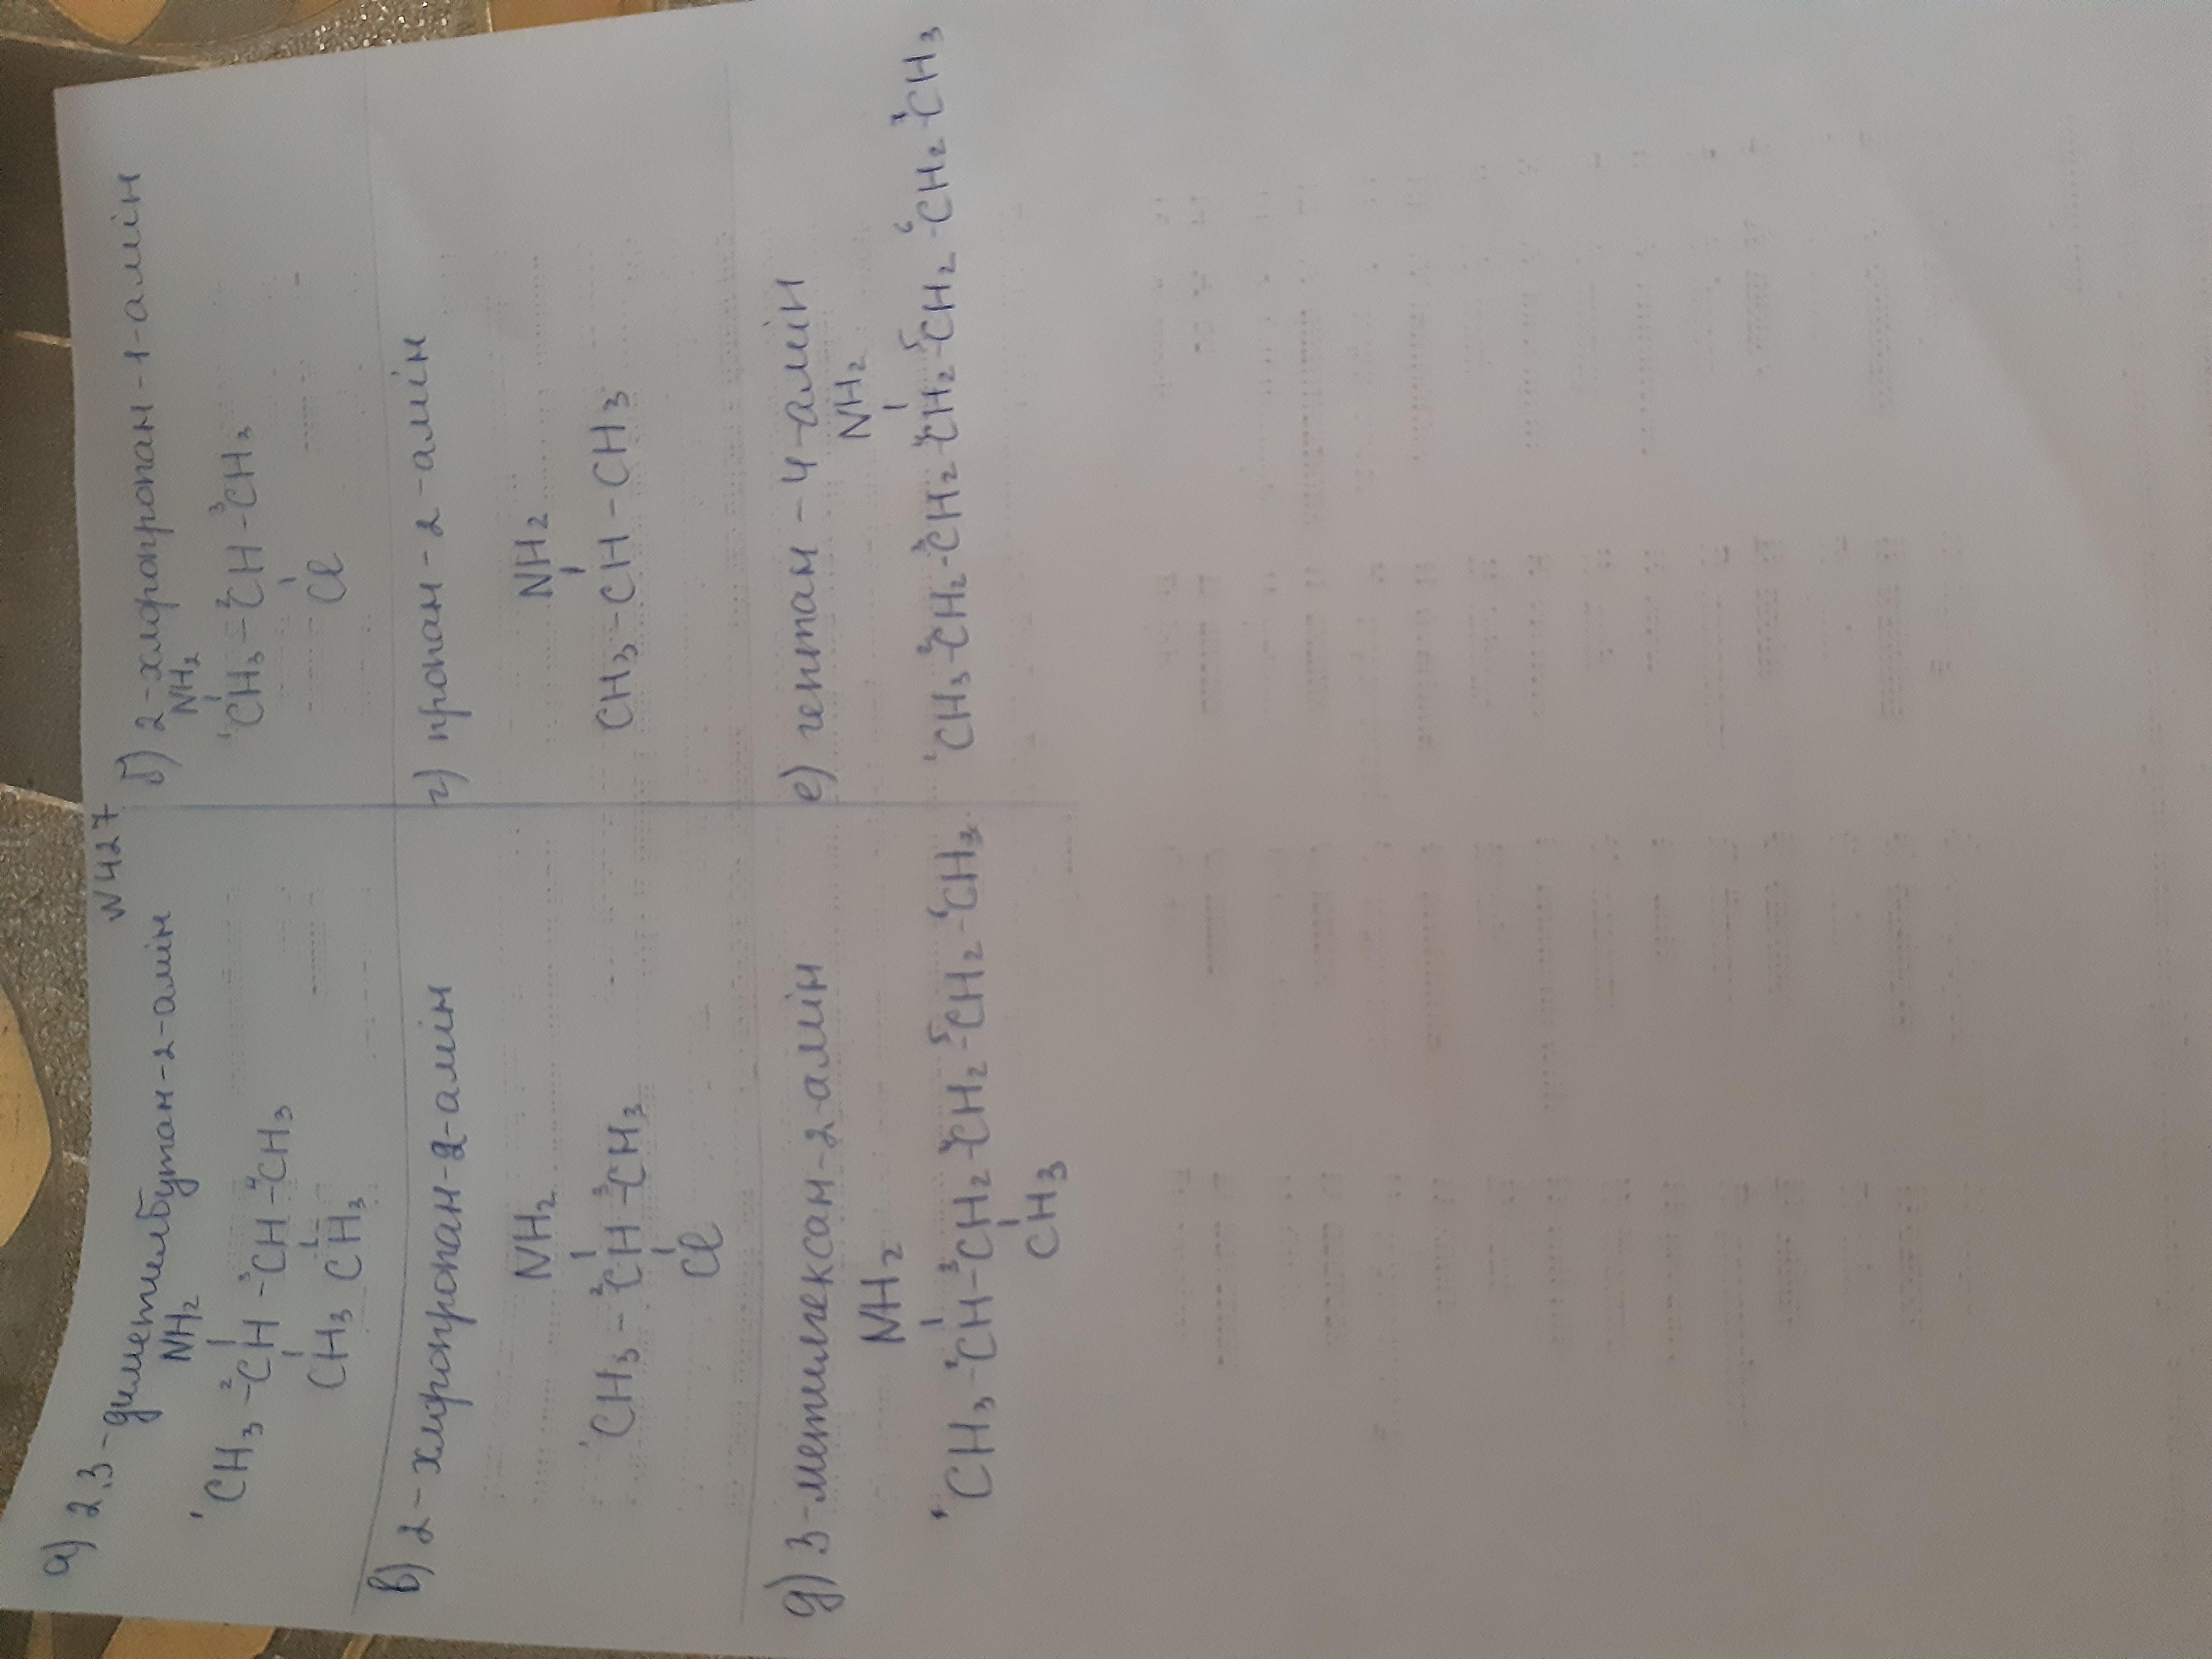 N427
а) 2,3-диметилбутан-2-амін
NH₂
¹CH₃-²CH-³CH-⁴CH₃
CH₃ CH₃
б) 2-хлорпропан-1-амін
NH₂
¹CH₃-²CH-³CH₃
Cl
в) 2-хлорпропан-2-амін
NH₂
¹CH₃-²CH-³CH₃
Cl
г) пропан-2-амін
NH₂
CH₃-CH-CH₃
д) 3-метилгексан-2-амін
NH₂
¹CH₃-²CH-³CH₂-⁴CH₂-⁵CH₂-⁶CH₃
CH₃
е) гептан-4-амін
NH₂
¹CH₃-²CH₂-³CH₂-⁴CH₂-⁵CH₂-⁶CH₂-⁷CH₃